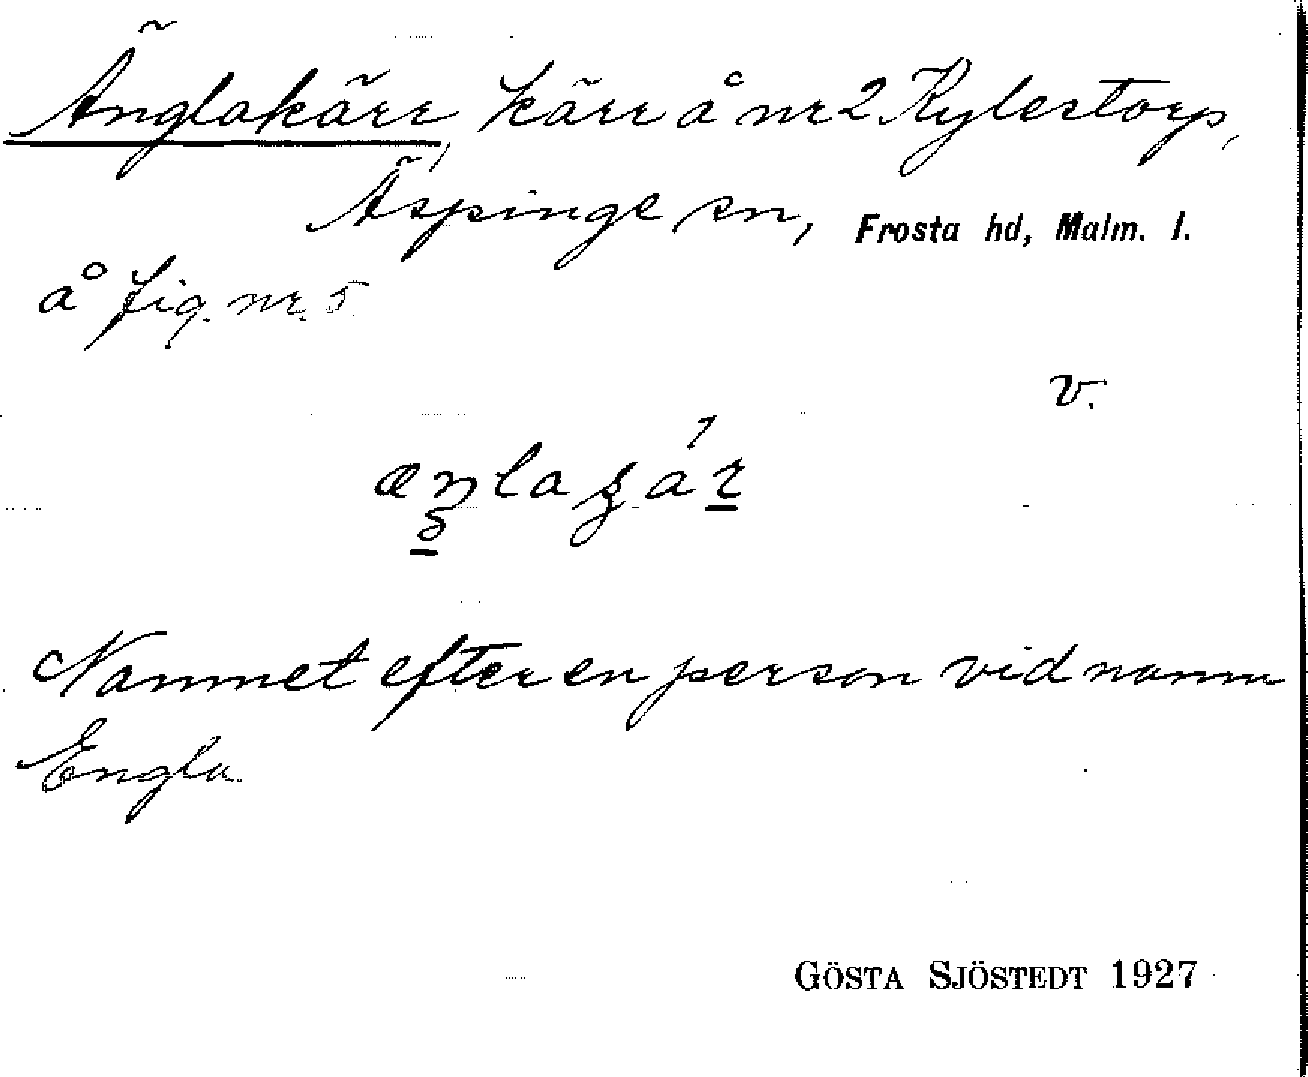 Änglakärr, kärr å nr 2 Kylestorp,
Äspinge sn, Frosta hd, Malm. l.
å fig. nr. 5
v.
Namnet efter en person vid namn
Engla
GÖSTA SJÖSTEDT 1927